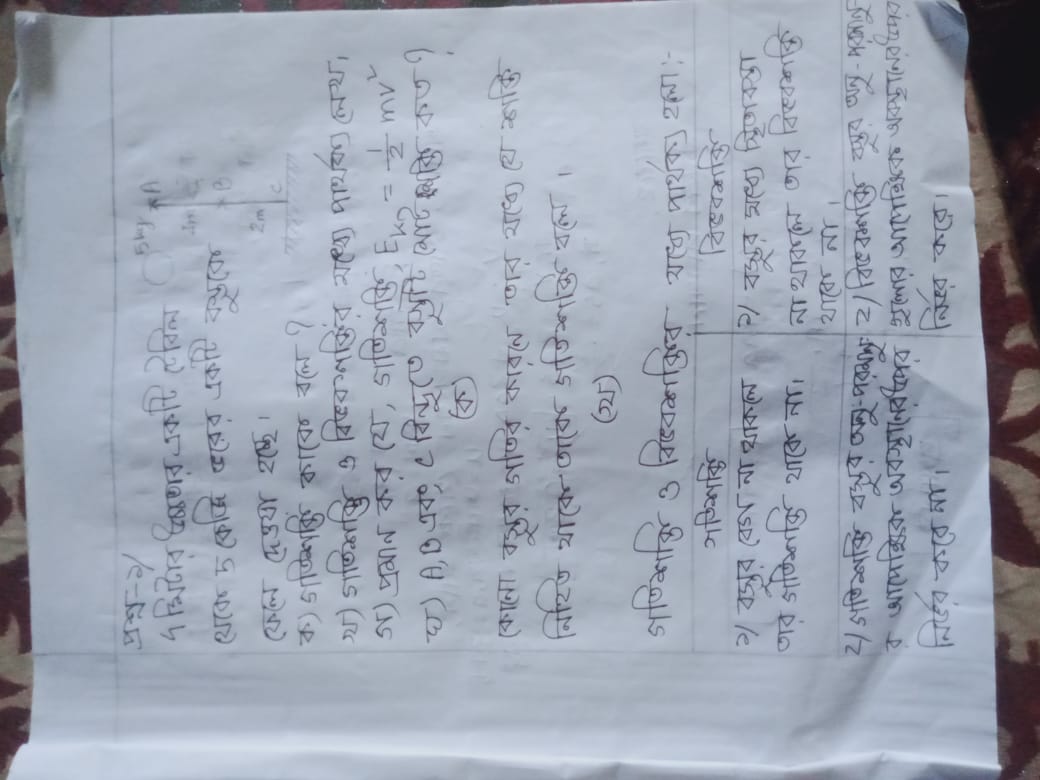 প্রশ্ন-১/
5kg A
4 মিটার উচ্চতার একটি টেবিল
B
থেকে 5 কেজি ভরের একটি বস্তুকে
2m
ফেলে দেওয়া হচ্ছে।
C
ক) গতিশক্তি কাকে বলে ?
খ) গতিশক্তি ও বিভবশক্তির মধ্যে পার্থক্য লেখ।
গ) প্রমান কর যে, গতিশক্তি, Eₖ = 1/2 mv²
ঘ) A, B এবং C বিন্দুতে বস্তুটি মোট শক্তি কত ?
(ক)
কোনো বস্তুর গতির কারনে তার মধ্যে যে শক্তি
নিহিত থাকে তাকে গতিশক্তি বলে ।
(খ)
গতিশক্তি ও বিভবশক্তির মধ্যে পার্থক্য হলো :-
গতিশক্তি বিভবশক্তি
১/ বস্তুর বেগ না থাকলে
তার গতিশক্তি থাকে না।
১/ বস্তুর মধ্যে স্থিতাবস্তা
না থাকলে তার বিভবশক্তি
থাকে না ।
2/ গতিশক্তি বস্তুর অনু-পরমানু-
র আপেক্ষিক অবস্থানের উপর
নির্ভর করে না।
2/ বিভবশক্তি বস্তুর অনু-পরমানু
গুলোর আপেক্ষিক অবস্থানের উপর
নির্ভর করে।